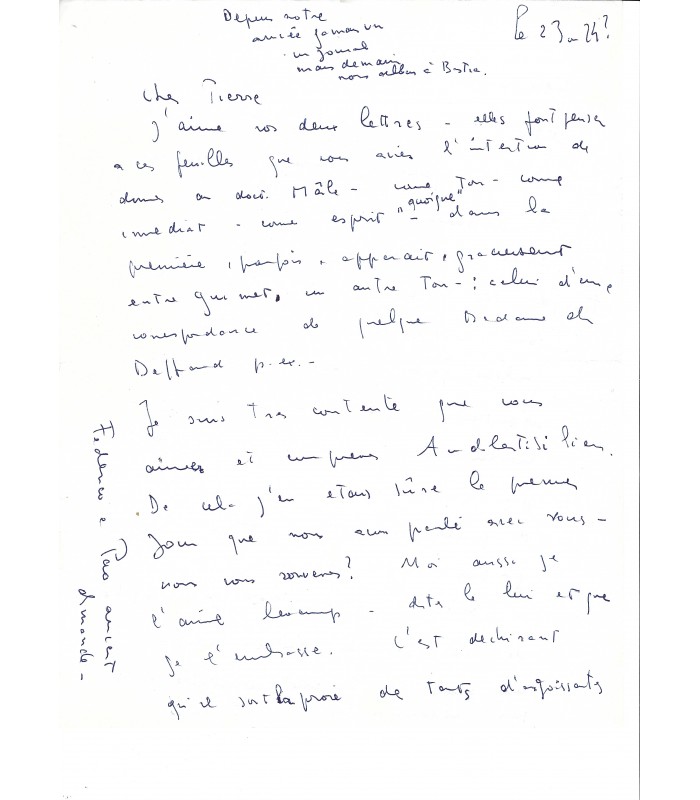 Depuis notre
arrivée jamais vu
un journal
mais demain
nous allons à Bastia.
le 23 ou 24?
Cher Pierre
J'aime vos deux lettres - elles font penser
a ces feuilles que vous aviez l'intention de
donner au doct. Mâle - comme Ton - comme
immediat - comme esprit - "quoique" dans la
première, parfois, apparait, gracieusement
entre guillmet, un autre Ton - : celui d'une
correspondance de quelque Madame du
Deffand p. ex. -
Je suis très contente que vous
aimez et
De cela j'en etais sûre le premier
Jour que nous avons parlé avec vous -
vous vous souvenez? Moi aussi je
l'aime beaucoup - dites le lui et que
je l'embrasse. C'est dechirant
qu'il soit la proie de tants d'angoissants
Federico e arrivent
dimanche -